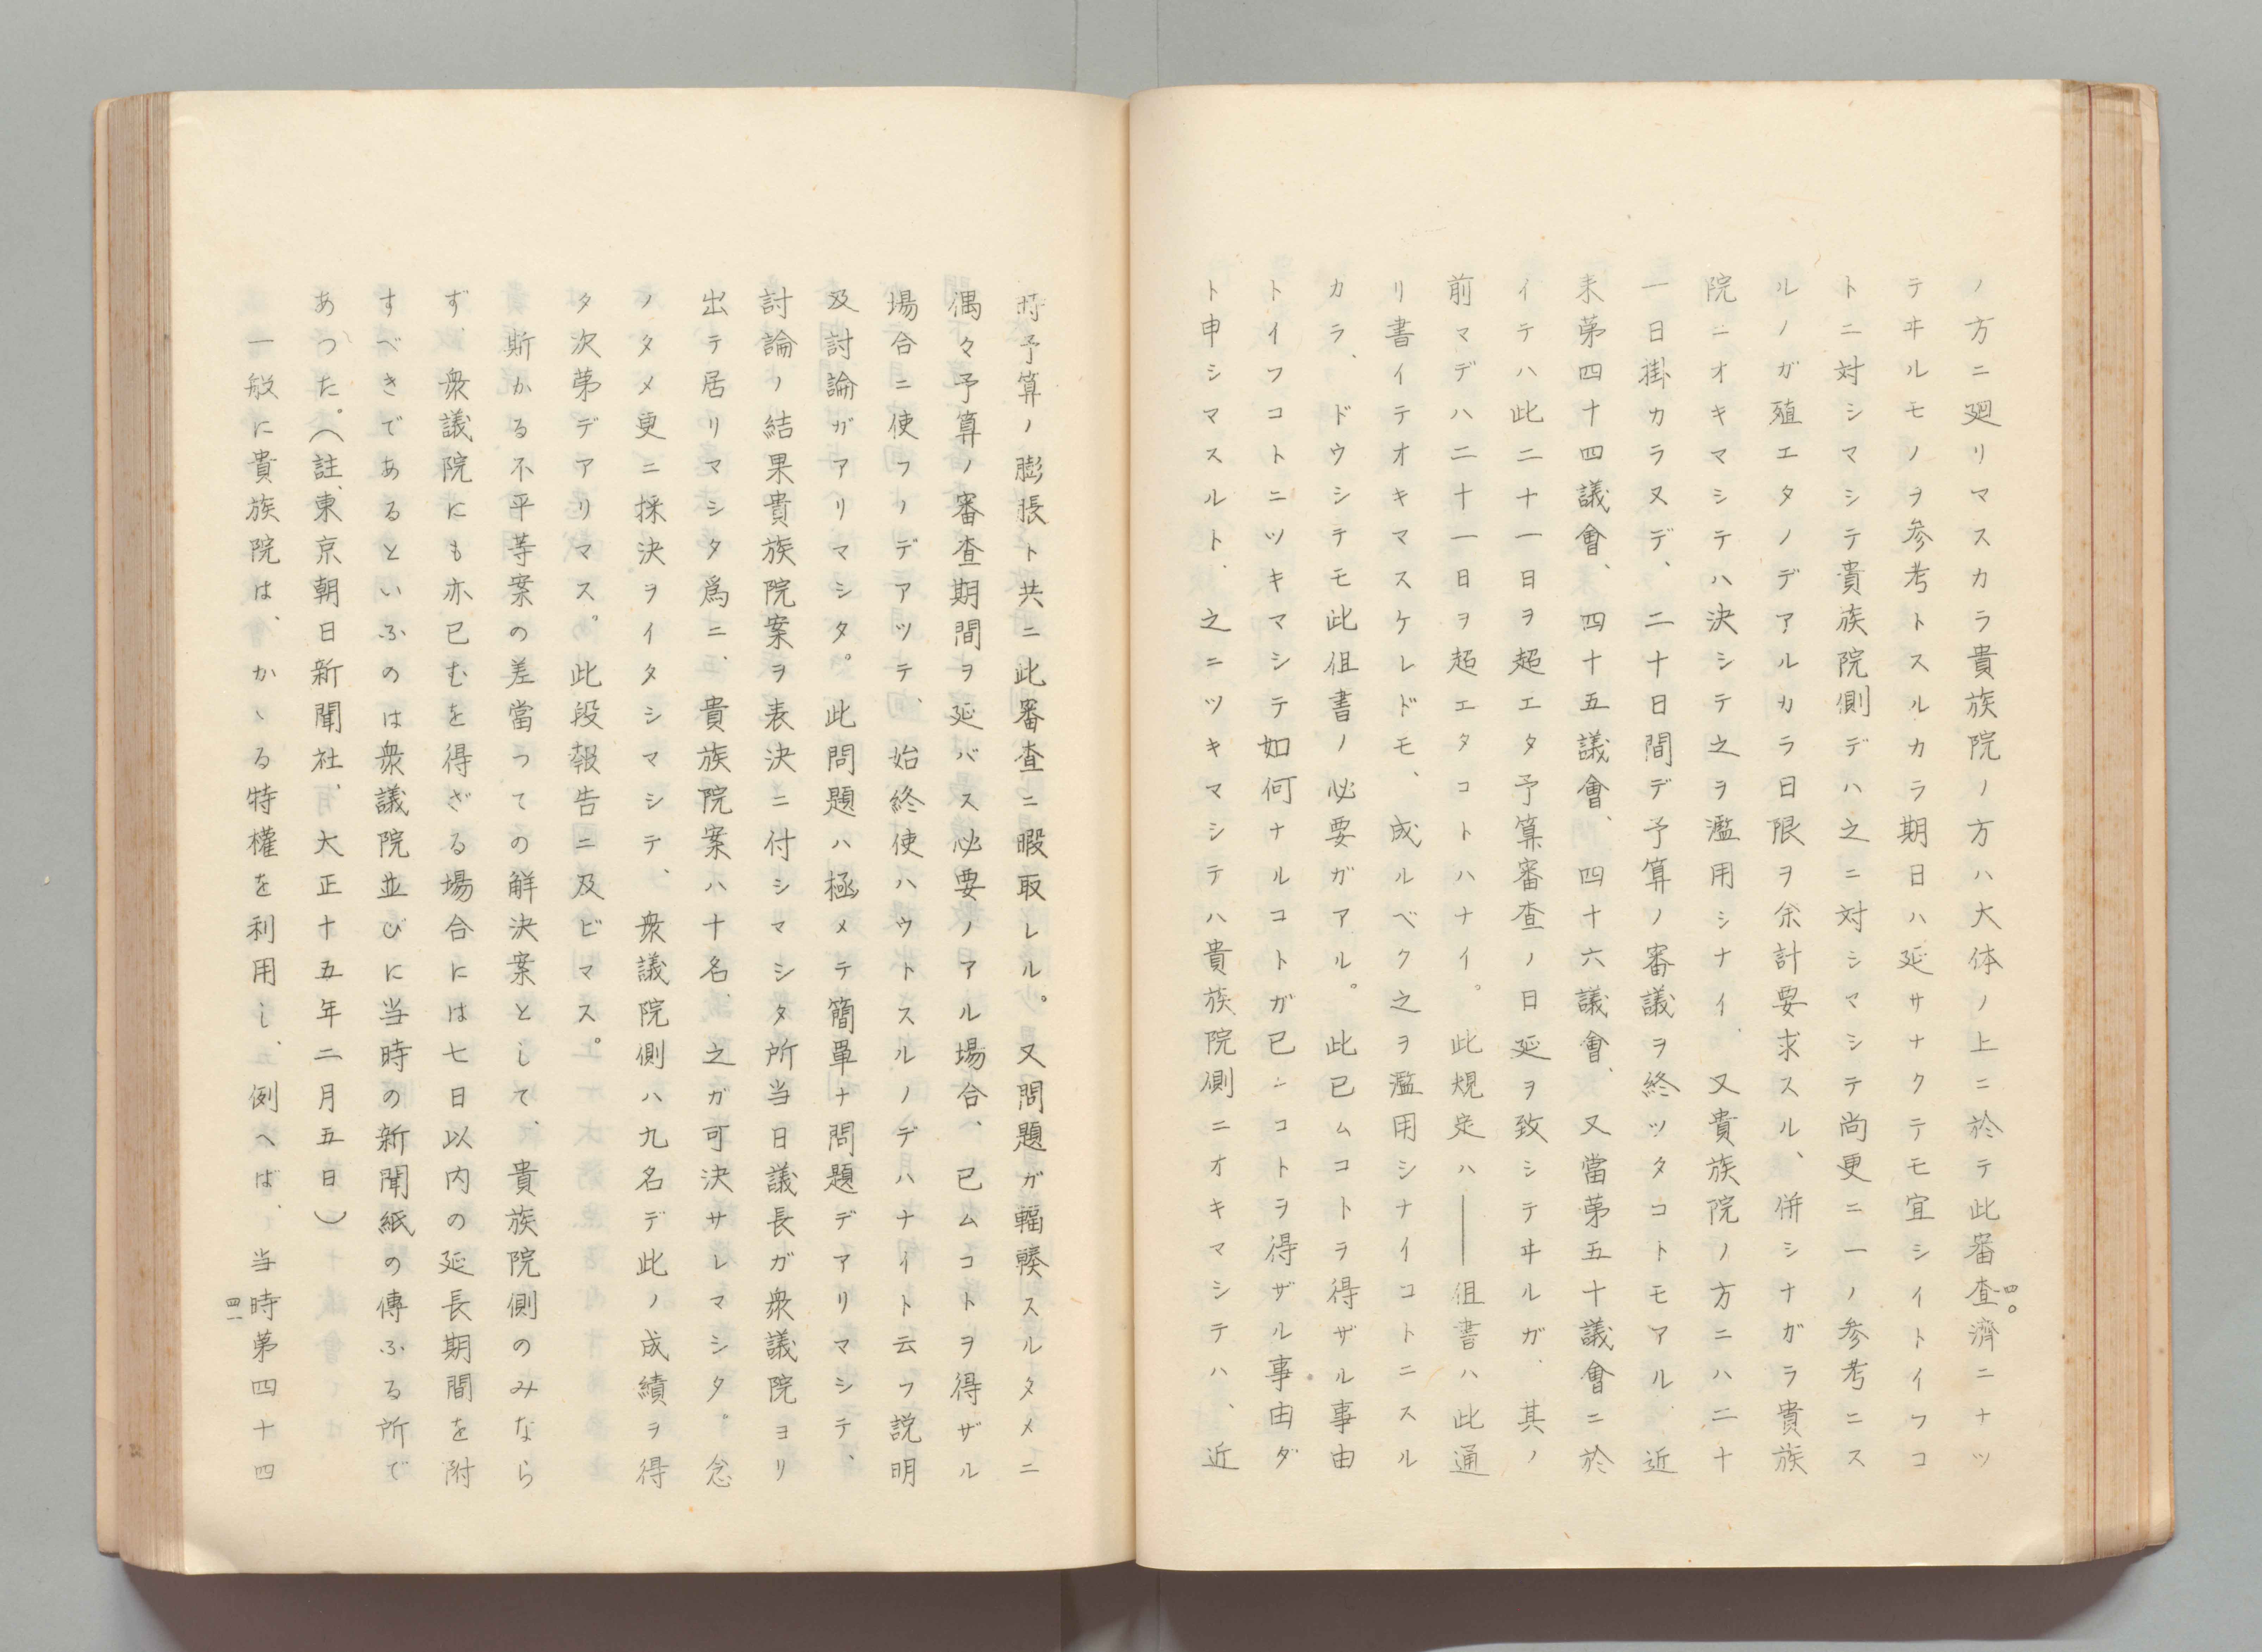 ノ方ニ廻リマスカラ貴族院ノ方ハ大体ノ上ニ於テ此審査濟ニナツ
テヰルモノヲ参考トスルカラ期日ハ延サナクテモ宜シイトイフコ
トニ対シマシテ貴族院側デハ之ニ対シマシテ尚更ニ一ノ参考ニス
ルノガ殖エタノデアルカラ日限ヲ余計要求スル、併シナガラ貴族
院ニオキマシテハ決シテ之ヲ濫用シナイ、又貴族院ノ方ニハ二十
一日掛カラヌデ、二十日間デ予算ノ審議ヲ終ツタコトモアル、近
来第四十四議會、四十五議會、四十六議會、又當第五十議會ニ於
イテハ此二十一日ヲ超エタ予算審査ノ日延ヲ致シテヰルガ、其ノ
前マデハ二十一日ヲ超エタコトハナイ。此規定ハ――但書ハ此通
リ書イテオキマスケレドモ、成ルベク之ヲ濫用シナイコトニスル
カラ、ドウシテモ此但書ノ必要ガアル。此已ムコトヲ得ザル事由
トイフコトニツキマシテ如何ナルコトガ已ンコトヲ得ザル事由ダ
ト申シマスルト、之ニツキマシテハ貴族院側ニオキマシテハ、近
四〇
時予算ノ膨張ト共ニ此審査ニ暇取レル。又問題ガ輻輳スルタメニ
偶々予算ノ審査期間ヲ延バス必要ノアル場合、已ムコトヲ得ザル
場合ニ使フノデアツテ、始終使ハウトスルノデハナイト云フ説明
及討論ガアリマシタ。此問題ハ極メテ簡單ナ問題デアリマシテ、
討論ノ結果貴族院案ヲ表決ニ付シマシタ所当日議長ガ衆議院ヨリ
出テ居リマシタ爲ニ、貴族院案ハ十名、之ガ可決サレマシタ。念
ノタメ更ニ採決ヲイタシマシテ、衆議院側ハ九名デ此ノ成績ヲ得
タ次第デアリマス。此段報告ニ及ビマス。
斯かる不平等案の差當つての解決案として、貴族院側のみなら
ず、衆議院にも亦已むを得ざる場合には七日以内の延長期間を附
すべきであるといふのは衆議院並びに当時の新聞紙の傳ふる所で
あつた。（註、東京朝日新聞社、大正十五年二月五日）
一般に貴族院は、かゝる特權を利用し、例へば、当時第四十四
四一